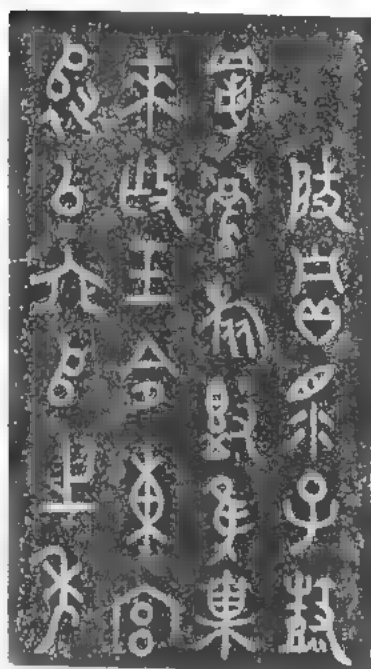 肇貯眔子鼓
鑄旅簋隹巢
來王令東宮
追以六師之年